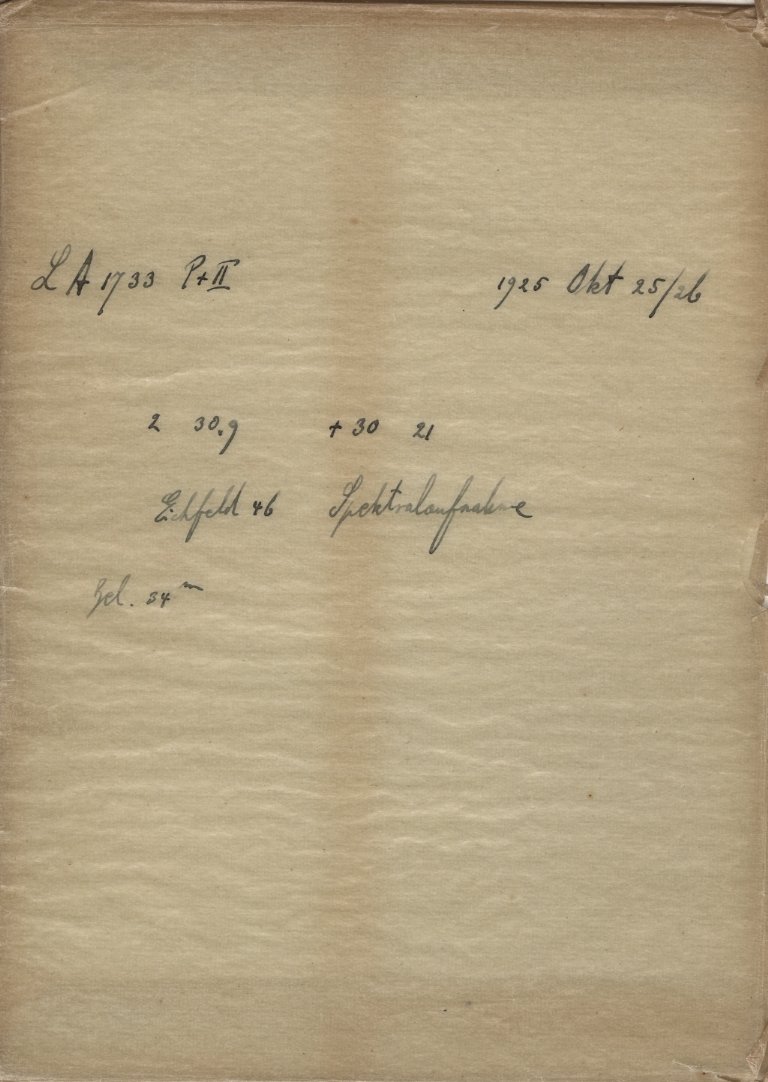 LA 1733 P+II 1925 Okt 25/26
2 30.9 +30 21
Eichfeld 46 Spektralaufnahme
Bel. 34ᵐ